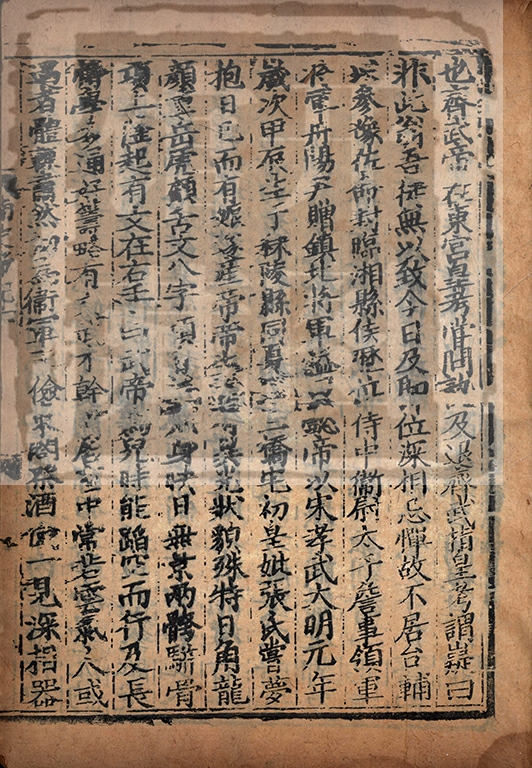 也齊武帝在東宮皇考嘗問訊及退齊武指皇考謂嶷曰
非此翁吾徒無以致今日及即位深相忌憚故不居台輔
以參豫佐命封臨湘縣侯歷位侍中衞尉太子詹事領軍
將軍丹陽尹贈鎮北將軍謚帝以宋孝武大明元年
歲次甲辰生于秣陵縣同夏里三橋宅初皇妣張氏嘗夢
抱日已而有娠遂產帝帝生異光狀貌殊特日角龍
顏重岳虎顧舌文八字項有身映日無影兩骻駢骨
項上隆起有文在右手曰武帝為兒時能蹈空而行及長
博學多通好籌略有文武才幹所居室中常若雲氣人或
遇者體輒肅然初為衞軍王儉東閣祭酒儉一見深相器